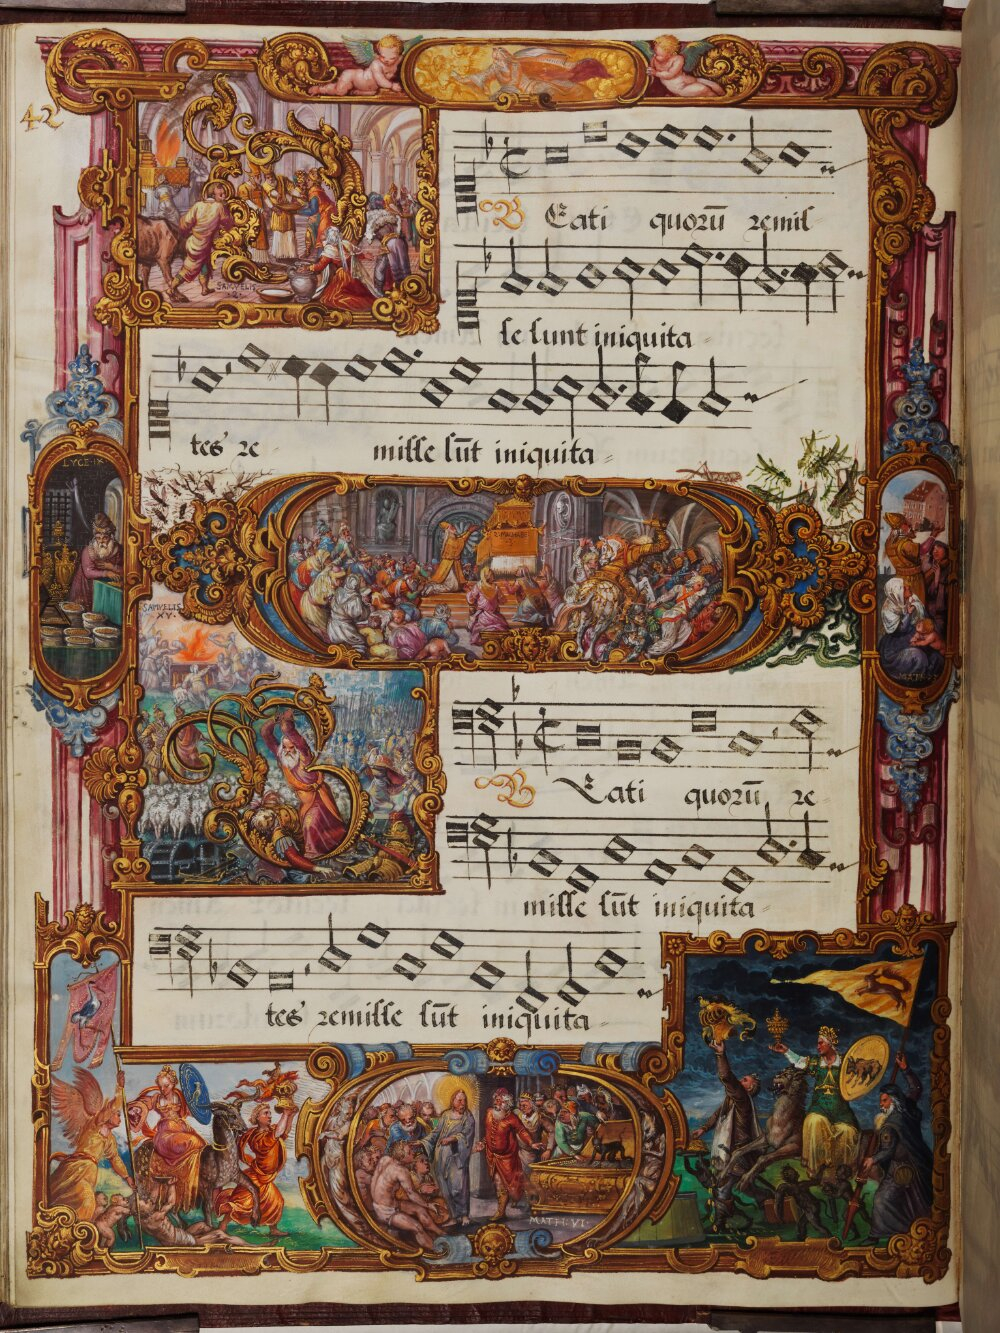 42
SAMVELIS
.2.
Beati quorū remis
se sunt iniquita
tes re misse sūt iniquita
LVCE. IX
2. MACHABE
3
SAMVELIS
XV.
MATH.
Beati quorū re
misse sūt iniquita
tes remisse sūt iniquita
MATH. VI.